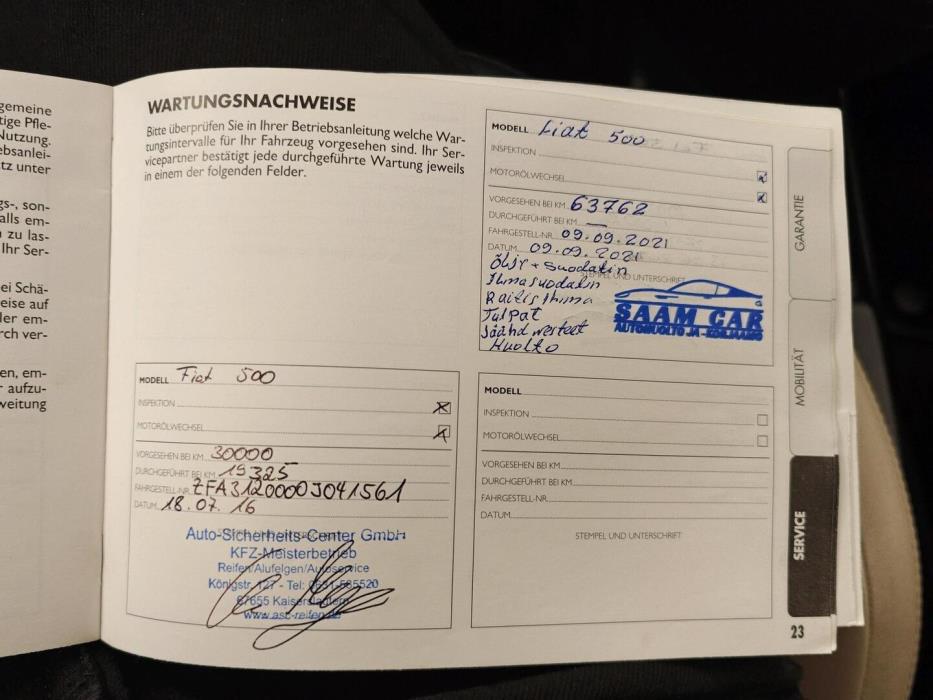 gemeine
tige Pfle-
Nutzung.
ebsanlei-
tz unter
gs-, son-
alls em-
zu las-
Ihr Ser-
ei Schä-
eise auf
ler em-
rch ver-
en, em-
aufzu-
weitung
WARTUNGSNACHWEISE
Bitte überprüfen Sie in Ihrer Betriebsanleitung welche War-
tungsintervalle für Ihr Fahrzeug vorgesehen sind. Ihr Ser-
vicepartner bestätigt jede durchgeführte Wartung jeweils
in einem der folgenden Felder.
MODELL Fiat 500
INSPEKTION
MOTORÖLWECHSEL
VORGESEHEN BEI KM 30000
DURCHGEFÜHRT BEI KM 19325
FAHRGESTELL-NR. ZFA3120000J041561
DATUM 18.07.16
Auto-Sicherheits-Center GmbH
KFZ-Meisterbetrieb
Reifen/Alufelgen/Autoservice
Königstr. 127 - Tel: 0631-535520
67655 Kaiserslautern
www.asc-reifen.de
MODELL Fiat 500
INSPEKTION
MOTORÖLWECHSEL
VORGESEHEN BEI KM 63762
DURCHGEFÜHRT BEI KM —
FAHRGESTELL-NR. 09.09.2021
DATUM 09.09.2021
Öljy + Suodatin
STEMPEL UND UNTERSCHRIFT
Ilmasuodatin
Raitis ilma
Tulpat
Jäähd nesteet
Huolto
SAAM CAR
AUTOHUOLTO JA -KORJAAMO
MODELL
INSPEKTION
MOTORÖLWECHSEL
VORGESEHEN BEI KM
DURCHGEFÜHRT BEI KM
FAHRGESTELL-NR.
DATUM
STEMPEL UND UNTERSCHRIFT
GARANTIE
MOBILITÄT
SERVICE
23